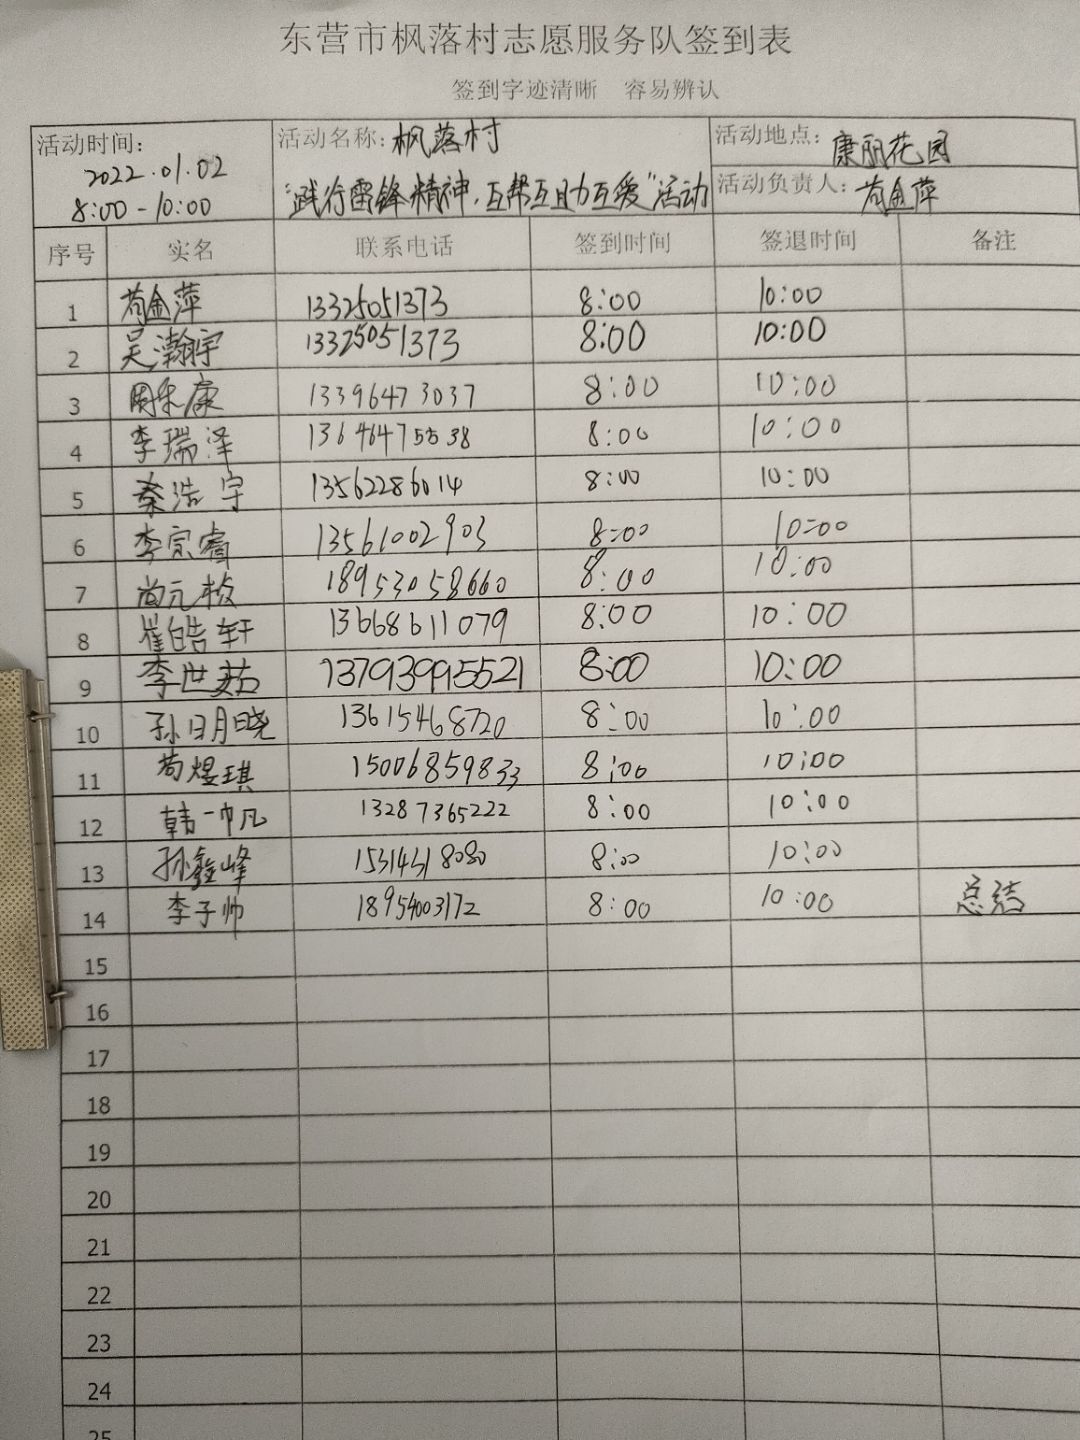 东营市枫落村志愿服务队签到表
签到字迹清晰 容易辨认
活动时间: 2022.01.02 8:00-10:00
活动名称: 枫落村 "践行雷锋精神,互帮互助互爱"活动
活动地点: 康丽花园
活动负责人: 苟金萍
序号 实名 联系电话 签到时间 签退时间 备注
1 苟金萍 13325051373 8:00 10:00
2 吴瀚宇 13325051373 8:00 10:00
3 周乐康 13396473037 8:00 10:00
4 李瑞泽 13646475538 8:00 10:00
5 秦浩宇 13562286014 8:00 10:00
6 李宗睿 13561002903 8:00 10:00
7 尚元 18953058660 8:00 10:00
8 崔皓轩 13668611079 8:00 10:00
9 李世茹 13793995521 8:00 10:00
10 孙明晓 13615468720 8:00 10:00
11 苟煜琪 15006859833 8:00 10:00
12 韩一帆 13287365222 8:00 10:00
13 孙鑫峰 15314318080 8:00 10:00
14 李子帅 18954003172 8:00 10:00 总结
15
16
17
18
19
20
21
22
23
24
25